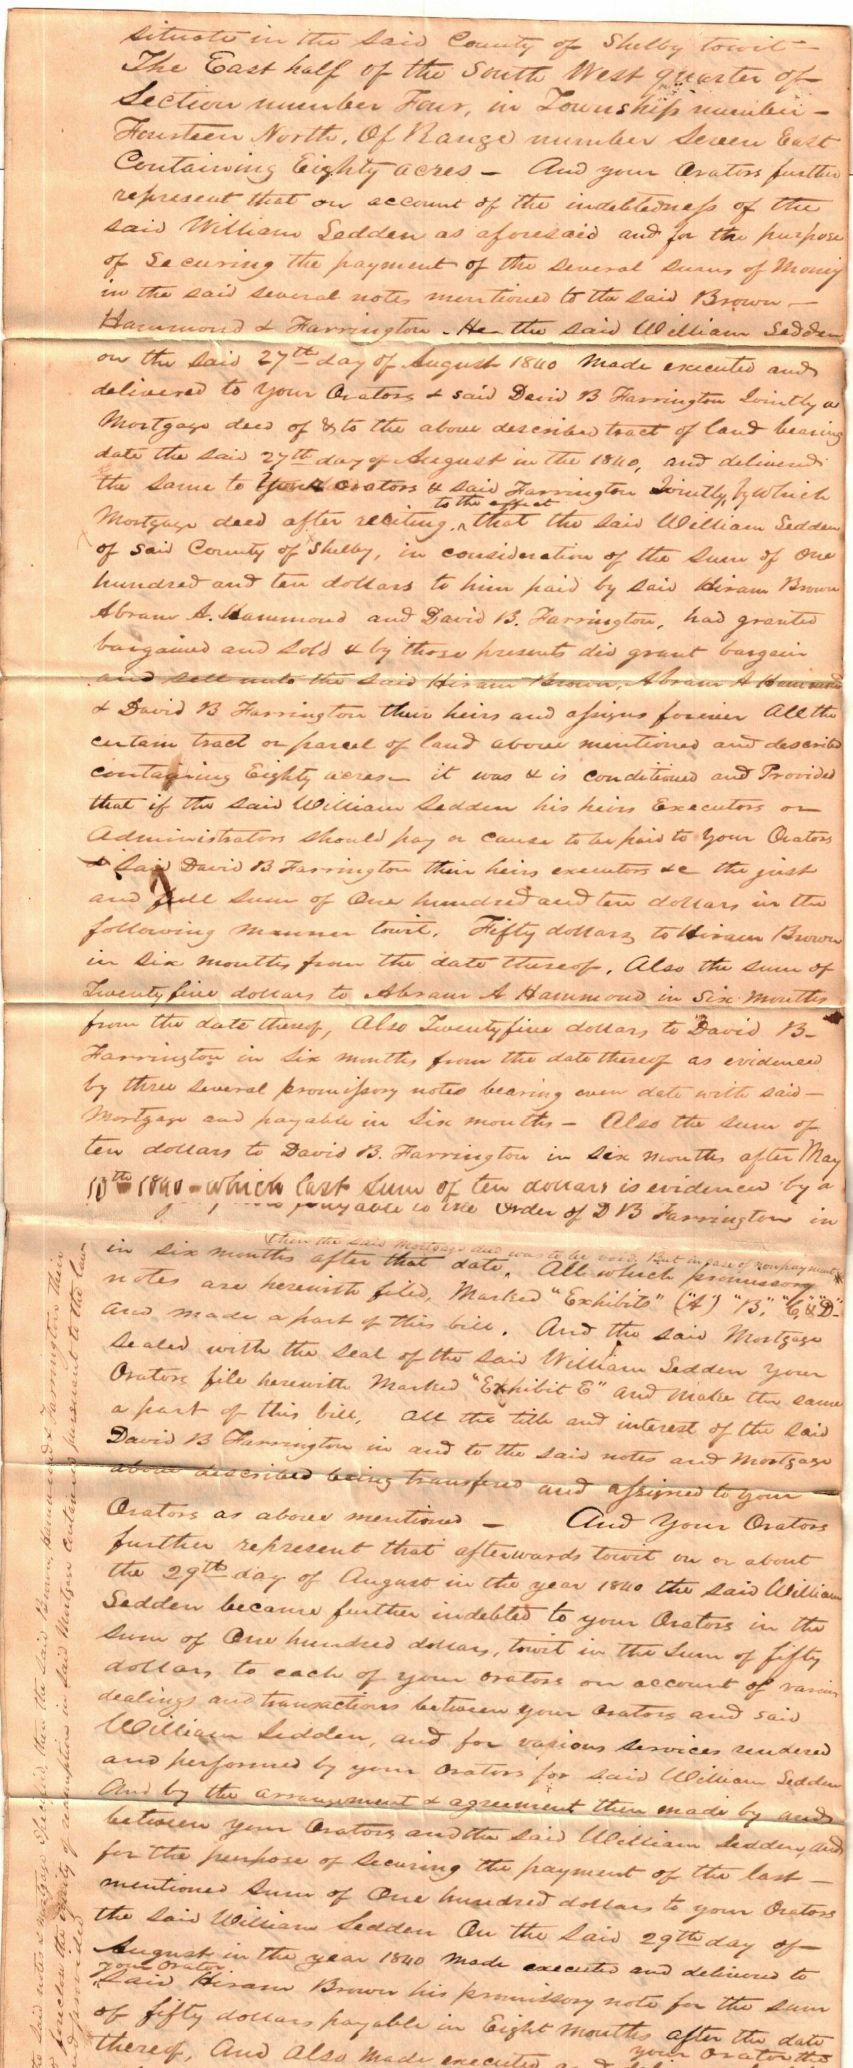 situate in the said County of Shelby towit —
The East half of the South West quarter of
Section number Four, in Township number —
Fourteen North, Of Range number Seven East
Containing Eighty acres — And your Orators further
represent that on account of the indebtedness of the
said William Sedden as aforesaid and for the purpose
of Securing the payment of the several sums of Money
in the said several notes mentioned to the said Brown —
Hammond & Farrington. He the said William Sedden
on the said 27th day of August 1840 made executed and
delivered to your Orators & said David B Farrington Jointly a
Mortgage deed of & to the above described tract of land bearing
date the said 27th day of August in the 1840, and delivered
the same to your orators & said Farrington Jointly, by which
to the effect
Mortgage deed after reciting, that the said William Sedden
of said County of Shelby, in consideration of the sum of One
hundred and ten dollars to him paid by said Hiram Brown
Abram A. Hammond and David B. Farrington, had granted
bargained and sold & by those presents did grant bargain
and sell unto the said Hiram Brown, Abram A Hammond
& David B Farrington their heirs and assigns forever All the
certain tract or parcel of land above mentioned and described
containing Eighty acres — it was & is conditioned and Provided
that if the said William Sedden his heirs Executors or
Administrators should pay or cause to be paid to your Orators
& said David B Farrington their heirs executors &c the just
and full sum of One hundred and ten dollars in the
following manner towit. Fifty dollars to Hiram Brown
in six months from the date thereof. Also the sum of
Twenty five dollars to Abram A Hammond in Six months
from the date thereof, Also Twenty five dollars to David B.
Farrington in six months from the date thereof as evidenced
by three several promissory notes bearing even date with said —
Mortgage and payable in six months — Also the sum of
ten dollars to David B. Farrington in six months after May
10th 1840 — which last sum of ten dollars is evidenced by a
payable to the Order of D B Farrington in
then the said mortgage deed was to be void. But in case of nonpayment
in six months after that date. All which promissory
notes are herewith filed, Marked "Exhibits" ("A") "B," "C," & "D"
and made a part of this bill. And the said Mortgage
sealed with the seal of the said William Sedden your
Orators file herewith Marked "Exhibit E" and make the same
a part of this bill, all the title and interest of the said
David B Farrington in and to the said notes and Mortgage
above described being transfered and assigned to your —
Orators as above mentioned — And Your Orators
further represent that afterwards towit on or about
the 29th day of August in the year 1840 the said William
Sedden became further indebted to your Orators in the
sum of One hundred dollars, towit in the sum of fifty
dollars to each of your orators on account of various
dealings and transactions between your orators and said
William Sedden, and for various services rendered
and performed by your orators for said William Sedden
And by the arrangement & agreement then made by and
between your Orators and the said William Sedden, and
for the purpose of securing the payment of the last —
mentioned sum of One hundred dollars to your Orators
the said William Sedden On the said 29th day of —
August in the year 1840 made executed and delivered to
your Orator
said Hiram Brown his promissory note for the sum
of fifty dollars payable in Eight months after the date
thereof, And Also made executed
your Orator the
said notes & mortgage specified, then the said Brown, Hammond & Farrington their
foreclose the equity of redemption in said Mortgage contained pursuant to the law
and provided